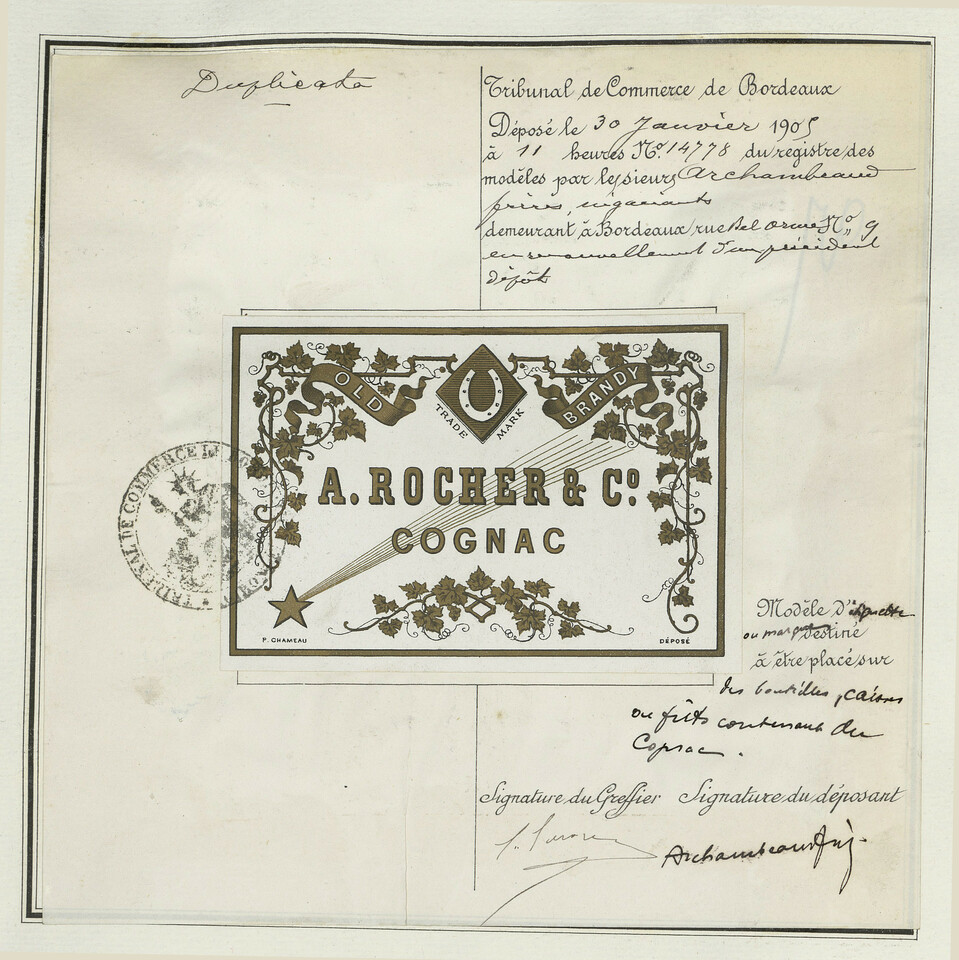 Duplicata
Tribunal de Commerce de Bordeaux
Déposé le 30 Janvier 1905
à 11 heures No. 14778 du registre des
modèles par les sieurs Archambeaud
frères, négociants
demeurant à Bordeaux rue Bel orme No 9
en renouvellement d'un précédent
dépôt
OLD
BRANDY
TRADE MARK
A. ROCHER & Co
COGNAC
F. CHAMEAU
DÉPOSÉ
TRIBUNAL DE COMMERCE DE
Modèle d'étiquette
ou marque destiné
à être placé sur
des bouteilles, caisses
ou fûts contenant du
Cognac.
Signature du Greffier Signature du déposant
Archambeaud